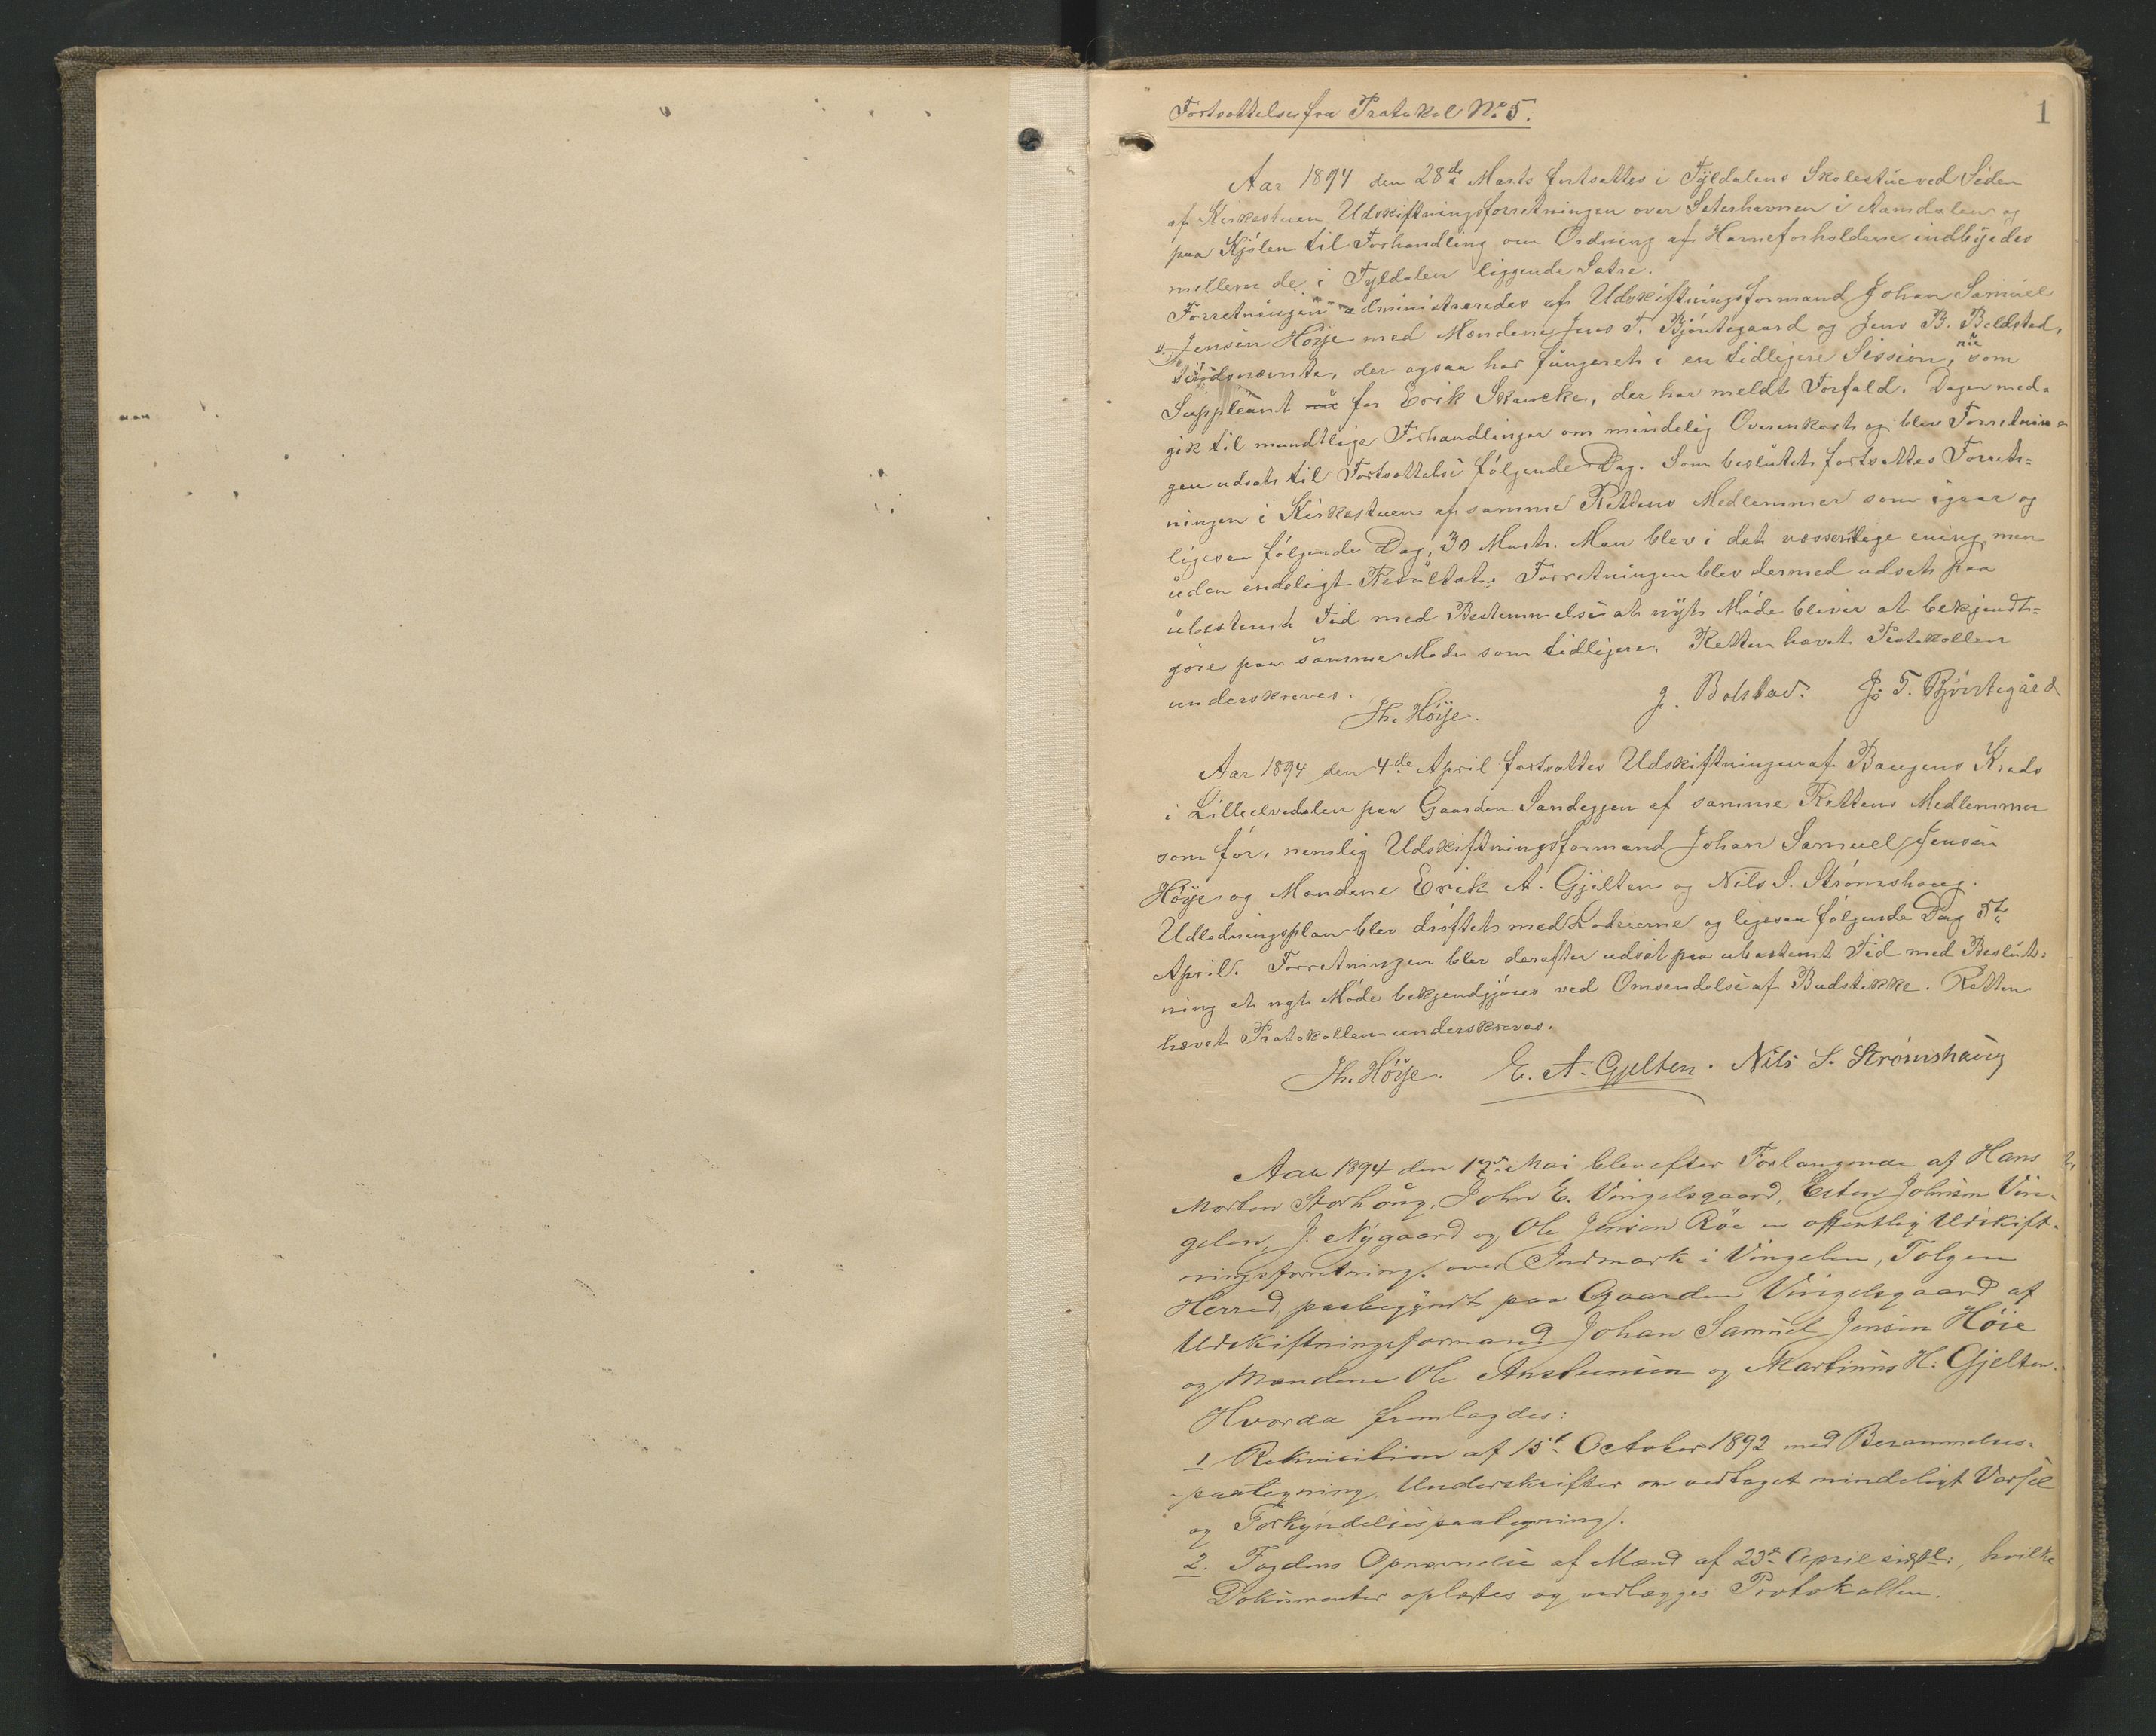 1
Fortsættelse fra Protokol No 5.
Aar 1894 den 28de Marts fortsattes i Tyldalens Skolestue ved Siden
af Kirkestuen Udskiftningsforretningen over Seterhavnen i Aamdalen og
paa Kjølen til Forhandling om Ordning af Havneforholdene indbyrdes
mellem de i Tyldalen liggende Sætre.
Forretningen administreredes af Udskiftningsformand Johan Samuel
Jensen Høye med Mændene Jens T. Bjørntegaard og Jens B. Boldstad,
der ogsaa har fungeret i en tidligere Session, nu som
Suppleant for Erik Skancke, der har meldt Forfald. Dagen med-
gik til mundtlige Forhandlinger om mindelig Overenkost og blev Forretnin-
gen udsat til Fortsættelse følgende Dag. Som besluttet fortsattes Forret-
ningen i Kirkestuen af samme Rettens Medlemmer som igaar og
ligesaa følgende Dag, 30 Marts. Man blev i det væssentlige enig, men
uden endeligt Resultat. Forretningen blev dermed udsat paa
ubestemt Tid med Bestemmelse at nyt Møde bliver at bekjendt-
gøre paa samme Maade som tidligere. Retten hævet Protokollen
underskreves.
Jh. Høye. J. Bolstad. Jo T. Bjørntegård
Aar 1894 den 4de April fortsattes Udskiftningen af Baugens Kreds
i Lilleelvedalen paa Gaarden Sandeggen af samme Rettens Medlemmer
som før, nemlig Udskiftningsformand Johan Samuel Jensen
Høye og Mændene Erik A. Gjelten og Nils S. Strømshaug.
Udlodningsplan blev drøftet med Lodeierne og ligesaa følgende Dag 5te
April. Forretningen blev derefter udsat paa ubestemt Tid med Beslut-
ning at nyt Møde bekjendgjøres ved Omsendelse af Budstikke. Retten
hævet Protokollen underskreves.
Jh. Høye. E. A. Gjelten. Nils S. Strømshaug
Aar 1894 den Mai blev efter Forlangende af Hans
Morten Storhaug, John E. Vingelsgaard, Esten Johnsen Vin-
gelen, J. Nygaard og Ole Jensen Røe en offentlig Udskift-
ningsforretning over Indmark i Vingelen, Tolgen
Herred, paabegyndt paa Gaarden Vingelsgaard af
Udskiftningsformand Johan Samuel Jensen Høie
og Mændene Ole Anstensen og Martinus H. Gjelten.
Hvorda fremlagdes:
1 Rekvisition af 15de October 1892 med Berammelses-
paategning, Underskrifter om vedtaget mindeligt Varsel
og Forkyndelsespaategning.
2. Fogdens Opnævnelse af Mænd af 23de April, hvilke
Dokumenter oplæstes og vedlægges Protokollen.